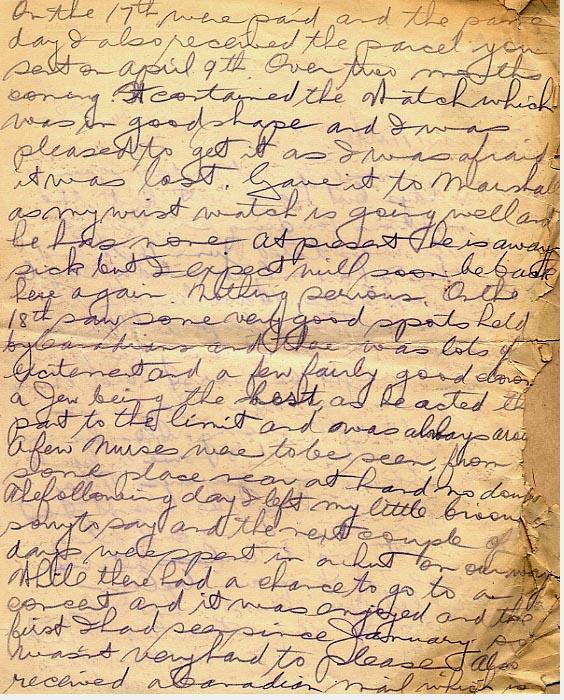 On the 17th were paid and the same
day I also received the parcel you
sent on April 9th. Over two months
coming. It contained the Watch which
was in good shape and I was
pleased to get it as I was afraid
it was lost. Gave it to Marshall
as my wrist watch is going well and
he has none. At present he is away
sick but I expect will soon be back
here again. Nothing serious. On the
18th saw some very good sports held
by Canadians and there was lots of
excitement and a few fairly good
a Jew being the best, as he acted the
part to the limit and was always
A few Nurses were to be seen, from
some place near at hand no doubt
The following day I left my little
sorry to say and the next couple of
days were spent in a hut on our way
While there had a chance to go to a
concert and it was enjoyed and the
first I had seen since January so
wasn't very hard to please. Also
received a Canadian mail which is